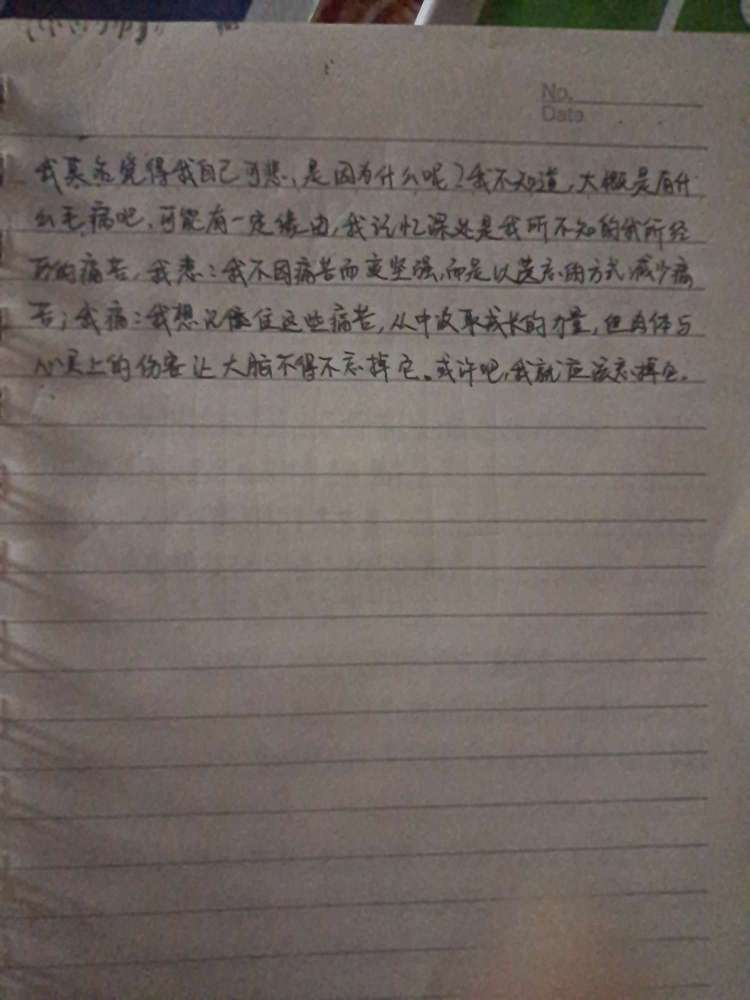 No.
Date
我莫名觉得我自己可悲,是因为什么呢?我不知道,大概是有什
么毛病吧,可能有一定缘由,我记忆深处是我所不知的我所经
历的痛苦,我悲:我不因痛苦而变坚强,而是以遗忘的方式减少痛
苦;我痛:我想记住这些痛苦,从中汲取成长的力量,但身体与
心灵上的伤害让大脑不得不忘掉它。或许吧,我就应该忘掉它.